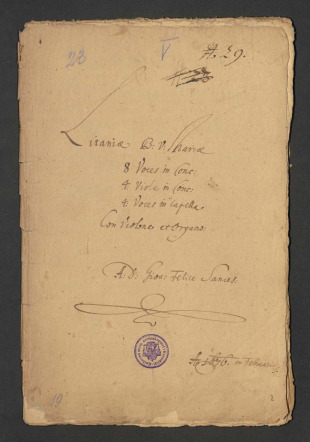 23 V A. 29.
Litaniæ B. V. Mariæ
8 Voces in Conc:
4. Viole in Conc:
4. Voces in Capella.
Con Violone, et Organo.
A. D. Giov: Felice Sances.
19
2